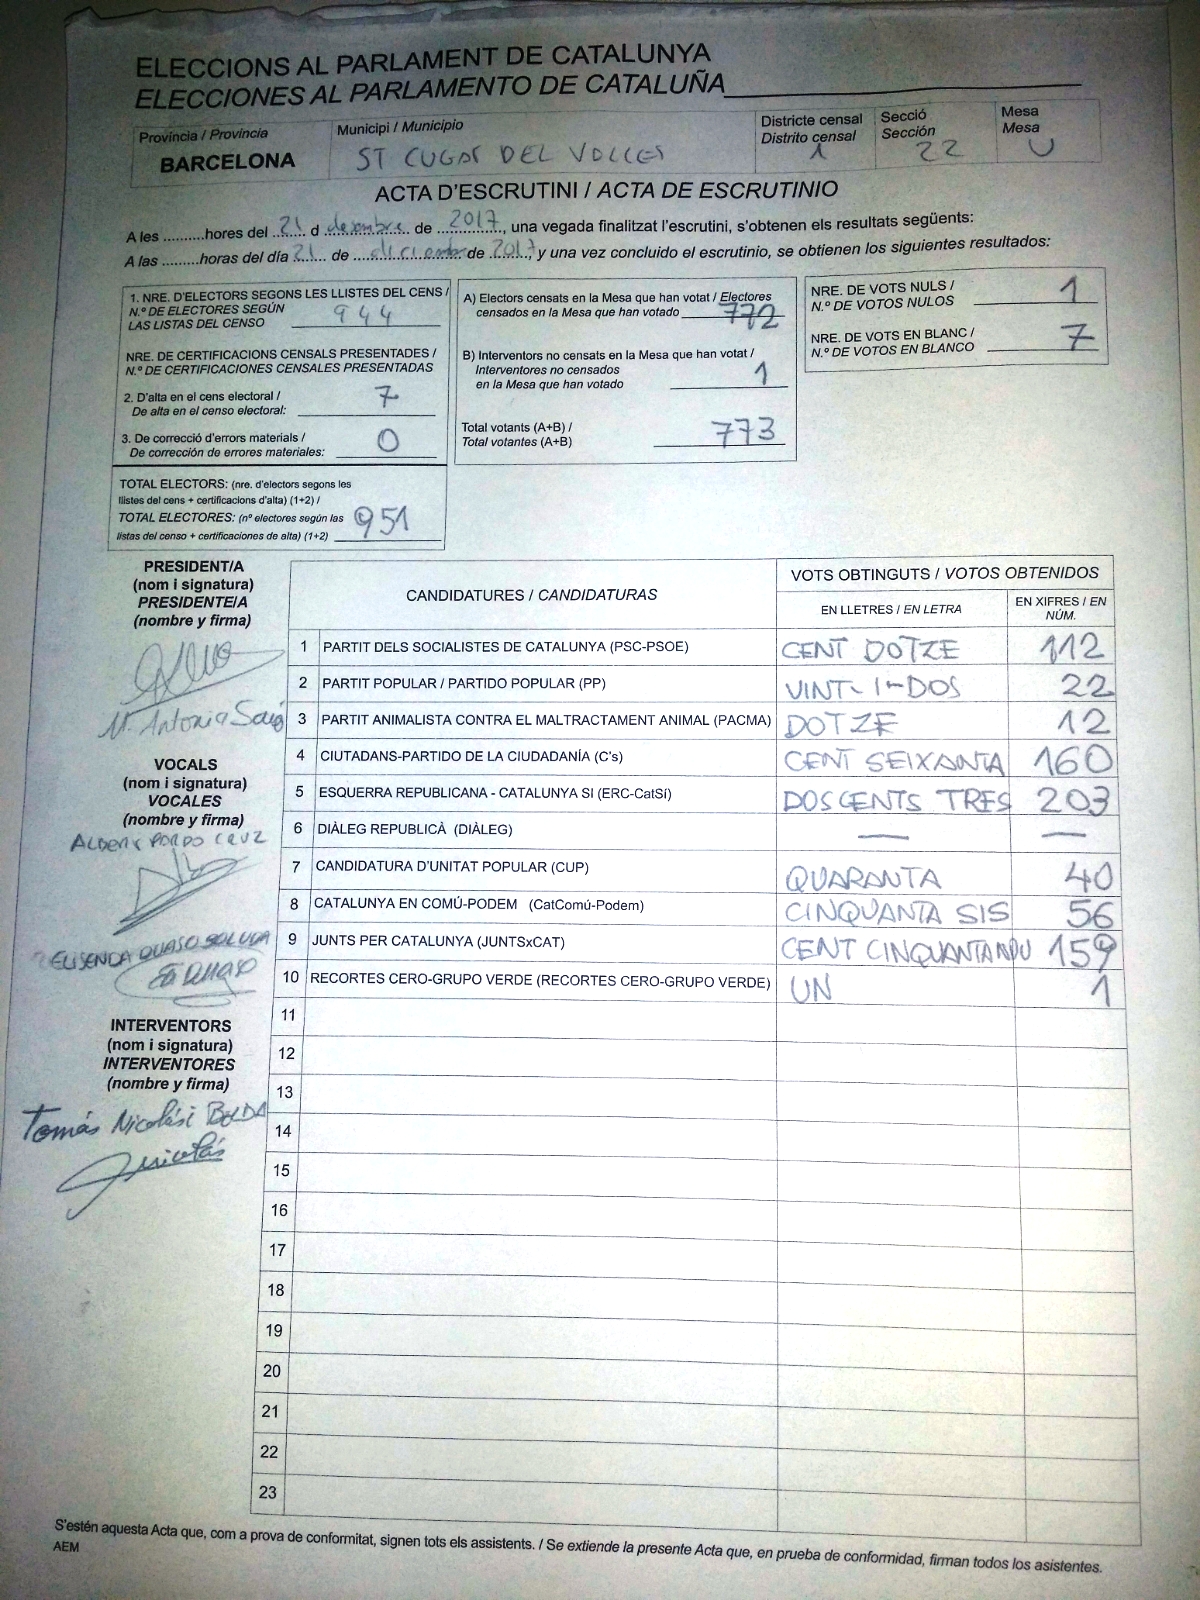 ELECCIONS AL PARLAMENT DE CATALUNYA
ELECCIONES AL PARLAMENTO DE CATALUÑA
Província / Provincia
BARCELONA
Municipi / Municipio
ST CUGAT DEL VALLES
Districte censal
Distrito censal
1
Secció
Sección
22
Mesa
Mesa
U
ACTA D'ESCRUTINI / ACTA DE ESCRUTINIO
A les .........hores del 21 d desembre de 2017, una vegada finalitzat l'escrutini, s'obtenen els resultats següents:
A las .........horas del día 21 de diciembre de 2017, y una vez concluido el escrutinio, se obtienen los siguientes resultados:
1. NRE. D'ELECTORS SEGONS LES LLISTES DEL CENS /
N.º DE ELECTORES SEGÚN
LAS LISTAS DEL CENSO 944
NRE. DE CERTIFICACIONS CENSALS PRESENTADES /
N.º DE CERTIFICACIONES CENSALES PRESENTADAS
2. D'alta en el cens electoral /
De alta en el censo electoral: 7
3. De correcció d'errors materials /
De corrección de errores materiales: 0
TOTAL ELECTORS: (nre. d'electors segons les
llistes del cens + certificacions d'alta) (1+2) /
TOTAL ELECTORES: (nº electores según las
listas del censo + certificaciones de alta) (1+2) 951
A) Electors censats en la Mesa que han votat / Electores
censados en la Mesa que han votado 772
B) Interventors no censats en la Mesa que han votat /
Interventores no censados
en la Mesa que han votado 1
Total votants (A+B) /
Total votantes (A+B) 773
NRE. DE VOTS NULS /
N.º DE VOTOS NULOS 1
NRE. DE VOTS EN BLANC /
N.º DE VOTOS EN BLANCO 7
PRESIDENT/A
(nom i signatura)
PRESIDENTE/A
(nombre y firma)
Mª Antonia
VOCALS
(nom i signatura)
VOCALES
(nombre y firma)
ALBERT PARDO CRUZ
ELISENDA
INTERVENTORS
(nom i signatura)
INTERVENTORES
(nombre y firma)
Tomás Nicolási
CANDIDATURES / CANDIDATURAS
VOTS OBTINGUTS / VOTOS OBTENIDOS
EN LLETRES / EN LETRA
EN XIFRES / EN NÚM.
1 PARTIT DELS SOCIALISTES DE CATALUNYA (PSC-PSOE) CENT DOTZE 112
2 PARTIT POPULAR / PARTIDO POPULAR (PP) VINT-I-DOS 22
3 PARTIT ANIMALISTA CONTRA EL MALTRACTAMENT ANIMAL (PACMA) DOTZE 12
4 CIUTADANS-PARTIDO DE LA CIUDADANÍA (C's) CENT SEIXANTA 160
5 ESQUERRA REPUBLICANA - CATALUNYA SI (ERC-CatSí) DOSCENTS TRES 203
6 DIÀLEG REPUBLICÀ (DIÀLEG) — —
7 CANDIDATURA D'UNITAT POPULAR (CUP) QUARANTA 40
8 CATALUNYA EN COMÚ-PODEM (CatComú-Podem) CINQUANTA SIS 56
9 JUNTS PER CATALUNYA (JUNTSxCAT) CENT CINQUANTANOU 159
10 RECORTES CERO-GRUPO VERDE (RECORTES CERO-GRUPO VERDE) UN 1
11
12
13
14
15
16
17
18
19
20
21
22
23
S'estén aquesta Acta que, com a prova de conformitat, signen tots els assistents. / Se extiende la presente Acta que, en prueba de conformidad, firman todos los asistentes.
AEM